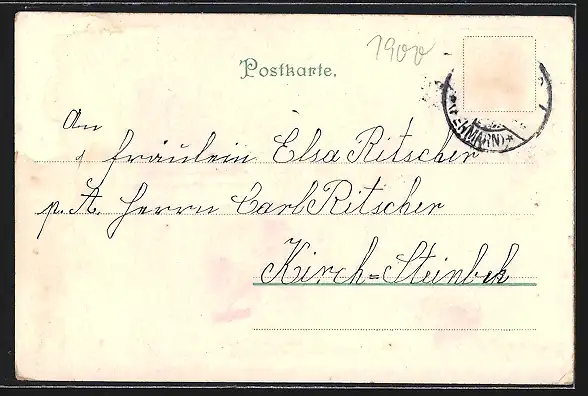 1900
Postkarte.
An
Fräulein Elsa Ritscher
p. A. Herrn Carl Ritscher
Kirch=Steinbek